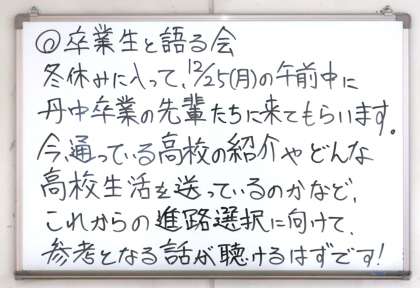 ◎卒業生と語る会
冬休みに入って、12/25(月)の午前中に
丹中卒業の先輩たちに来てもらいます。
今、通っている高校の紹介やどんな
高校生活を送っているのかなど、
これからの進路選択に向けて、
参考となる話が聴けるはずです!